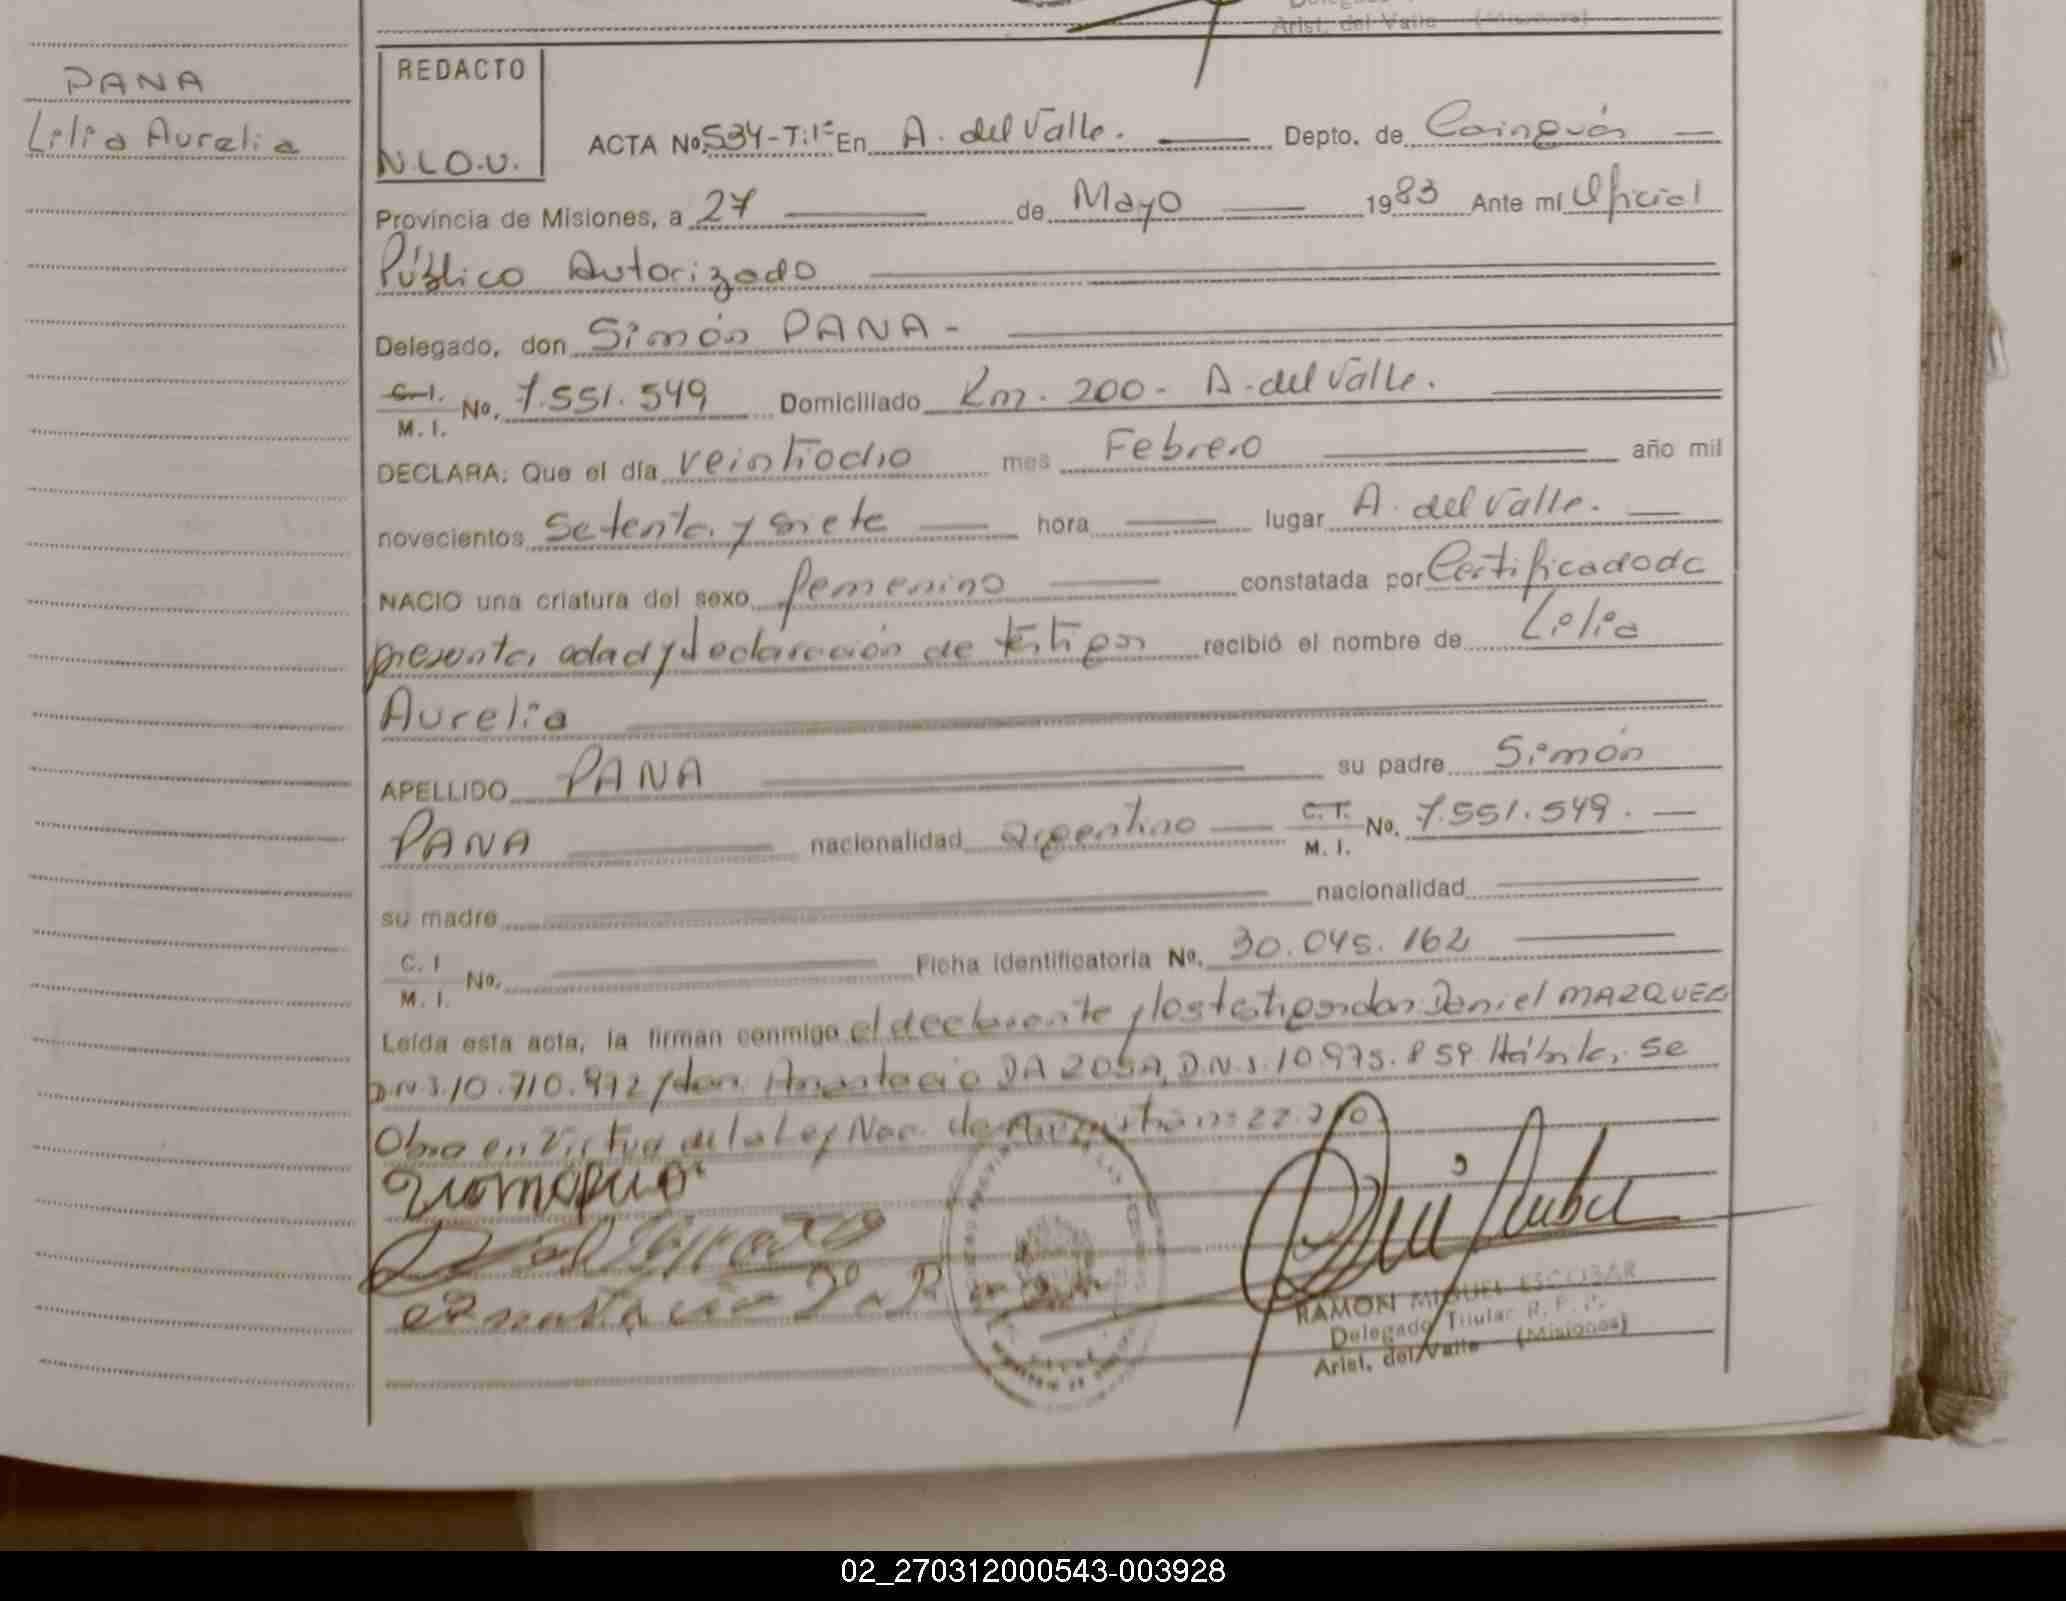 Arist. del Valle (Misiones)
PANA
Lilia Aurelia
REDACTO
N.L.O.U.
ACTA No. 534-T:1º En A. del Valle. Depto. de Cainguás
Provincia de Misiones, a 27 de Mayo 1983 Ante mí Oficial
Público Autorizado
Delegado, don Simón PANA-
C.I.
M. I. No. 7.551.549 Domiciliado Km. 200- A. del Valle.
DECLARA: Que el día veintiocho mes Febrero año mil
novecientos setenta y siete hora lugar A. del Valle.
NACIO una criatura del sexo femenino constatada por Certificado de
presunta edad y declaración de testigos recibió el nombre de Lilia
Aurelia
APELLIDO PANA su padre Simón
PANA nacionalidad argentino C.I. M. I. No. 7.551.549.
su madre nacionalidad
C. I
M. I. No. Ficha Identificatoria No. 30.045.162
Leída esta acta, la firman conmigo el declarante y los testigos don Daniel MAZQUEZ
D.N.I. 10.710.972 y don Anastacio DA ROSA, D.N.I. 10.975.859. Hábiles. Se
Obra en Virtud de la Ley Nac. de Amnistía nº 22.
RAMON MIGUEL ESCOBAR
Delegado Titular R. P. P.
Arist. del Valle (Misiones)
02_270312000543-003928